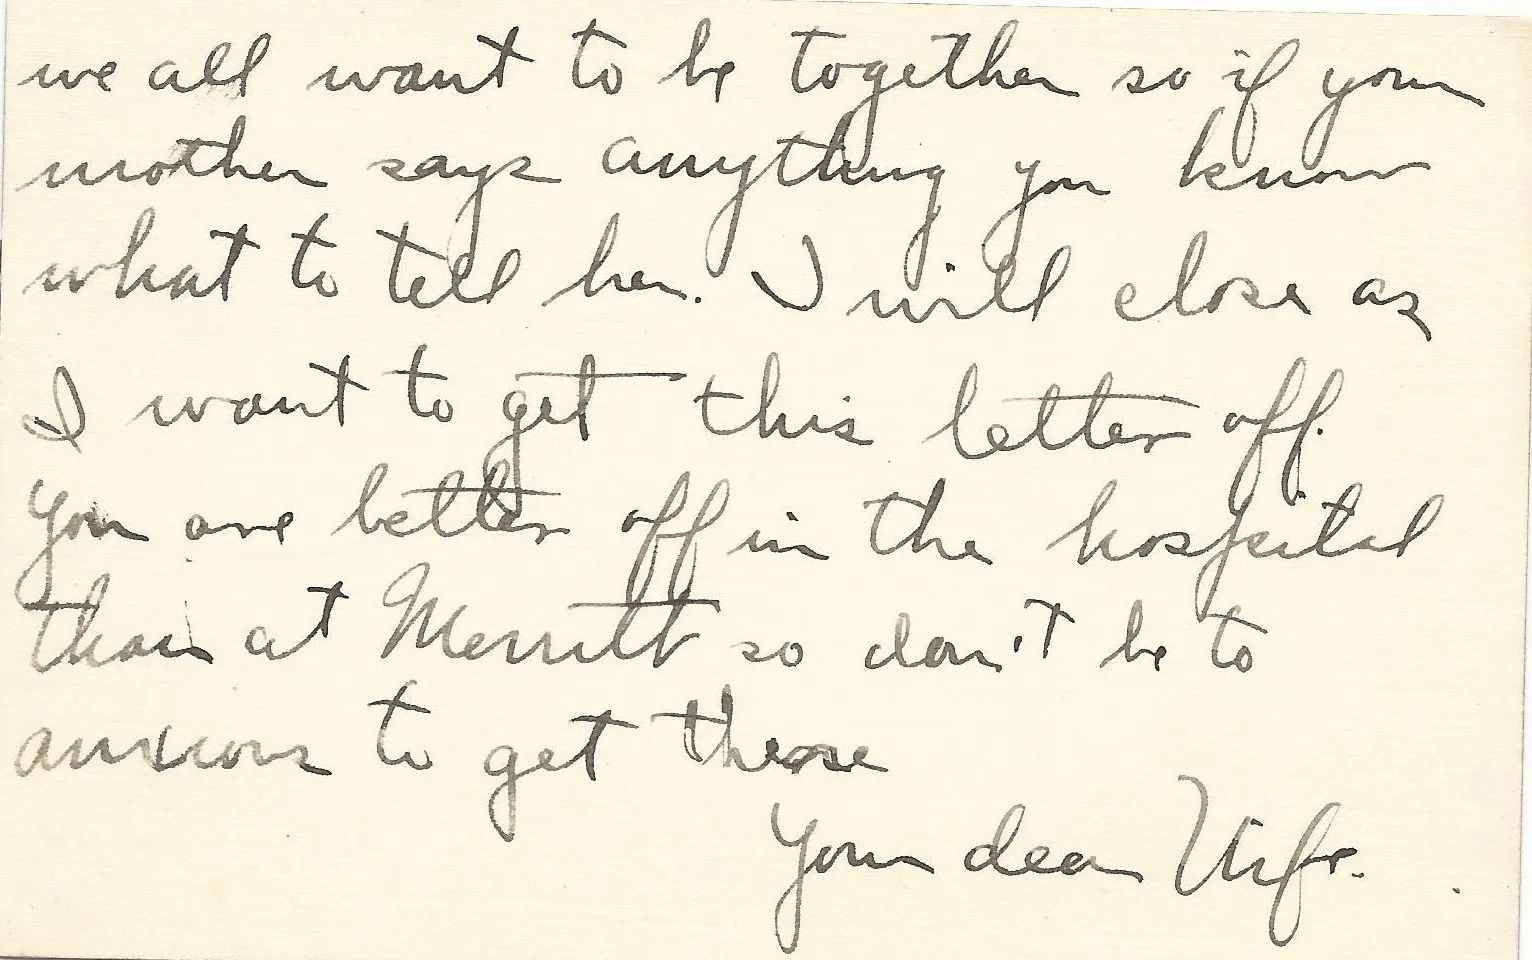 we all want to be together so if your
mother says anything you know
what to tell her. I will close as
I want to get this letter off.
You are better off in the hospital
than at Merritt so don't be to
anxious to get there
Your dear Wife.